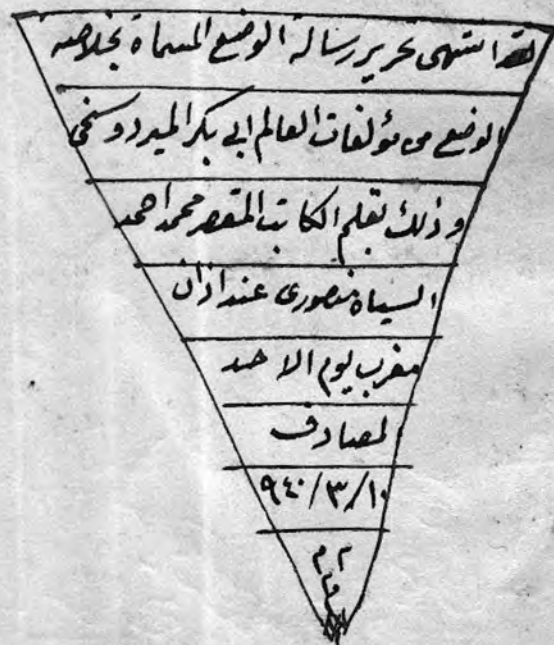 انتهى تحرير رسالة الوضع المسماة بخلاصة
الوضع من مؤلفات العالم ابي بكر الميردوستمي
وذلك بقلم الكاتب المقصر محمد احمد
السياه منصوري عند اذان
مغرب يوم الاحد
المصادف
٩٤٠/٣/١٠